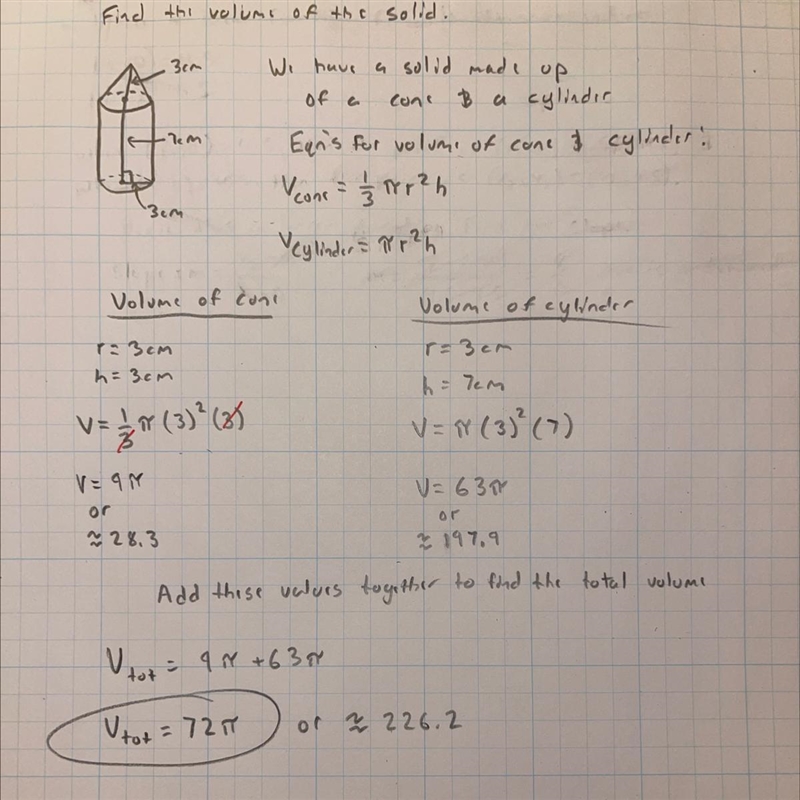 Find the volume of the solid.
3cm
7cm
3cm
We have a solid made up
of a cone & a cylinder
Eqn's for volume of cone & cylinder:
V_cone = 1/3 πr²h
V_cylinder = πr²h
Volume of cone
r = 3cm
h = 3cm
V = 1/3 π(3)²(3)
V = 9π
or
≈ 28.3
Volume of cylinder
r = 3cm
h = 7cm
V = π(3)²(7)
V = 63π
or
≈ 197.9
Add these values together to find the total volume
V_tot = 9π + 63π
V_tot = 72π or ≈ 226.2